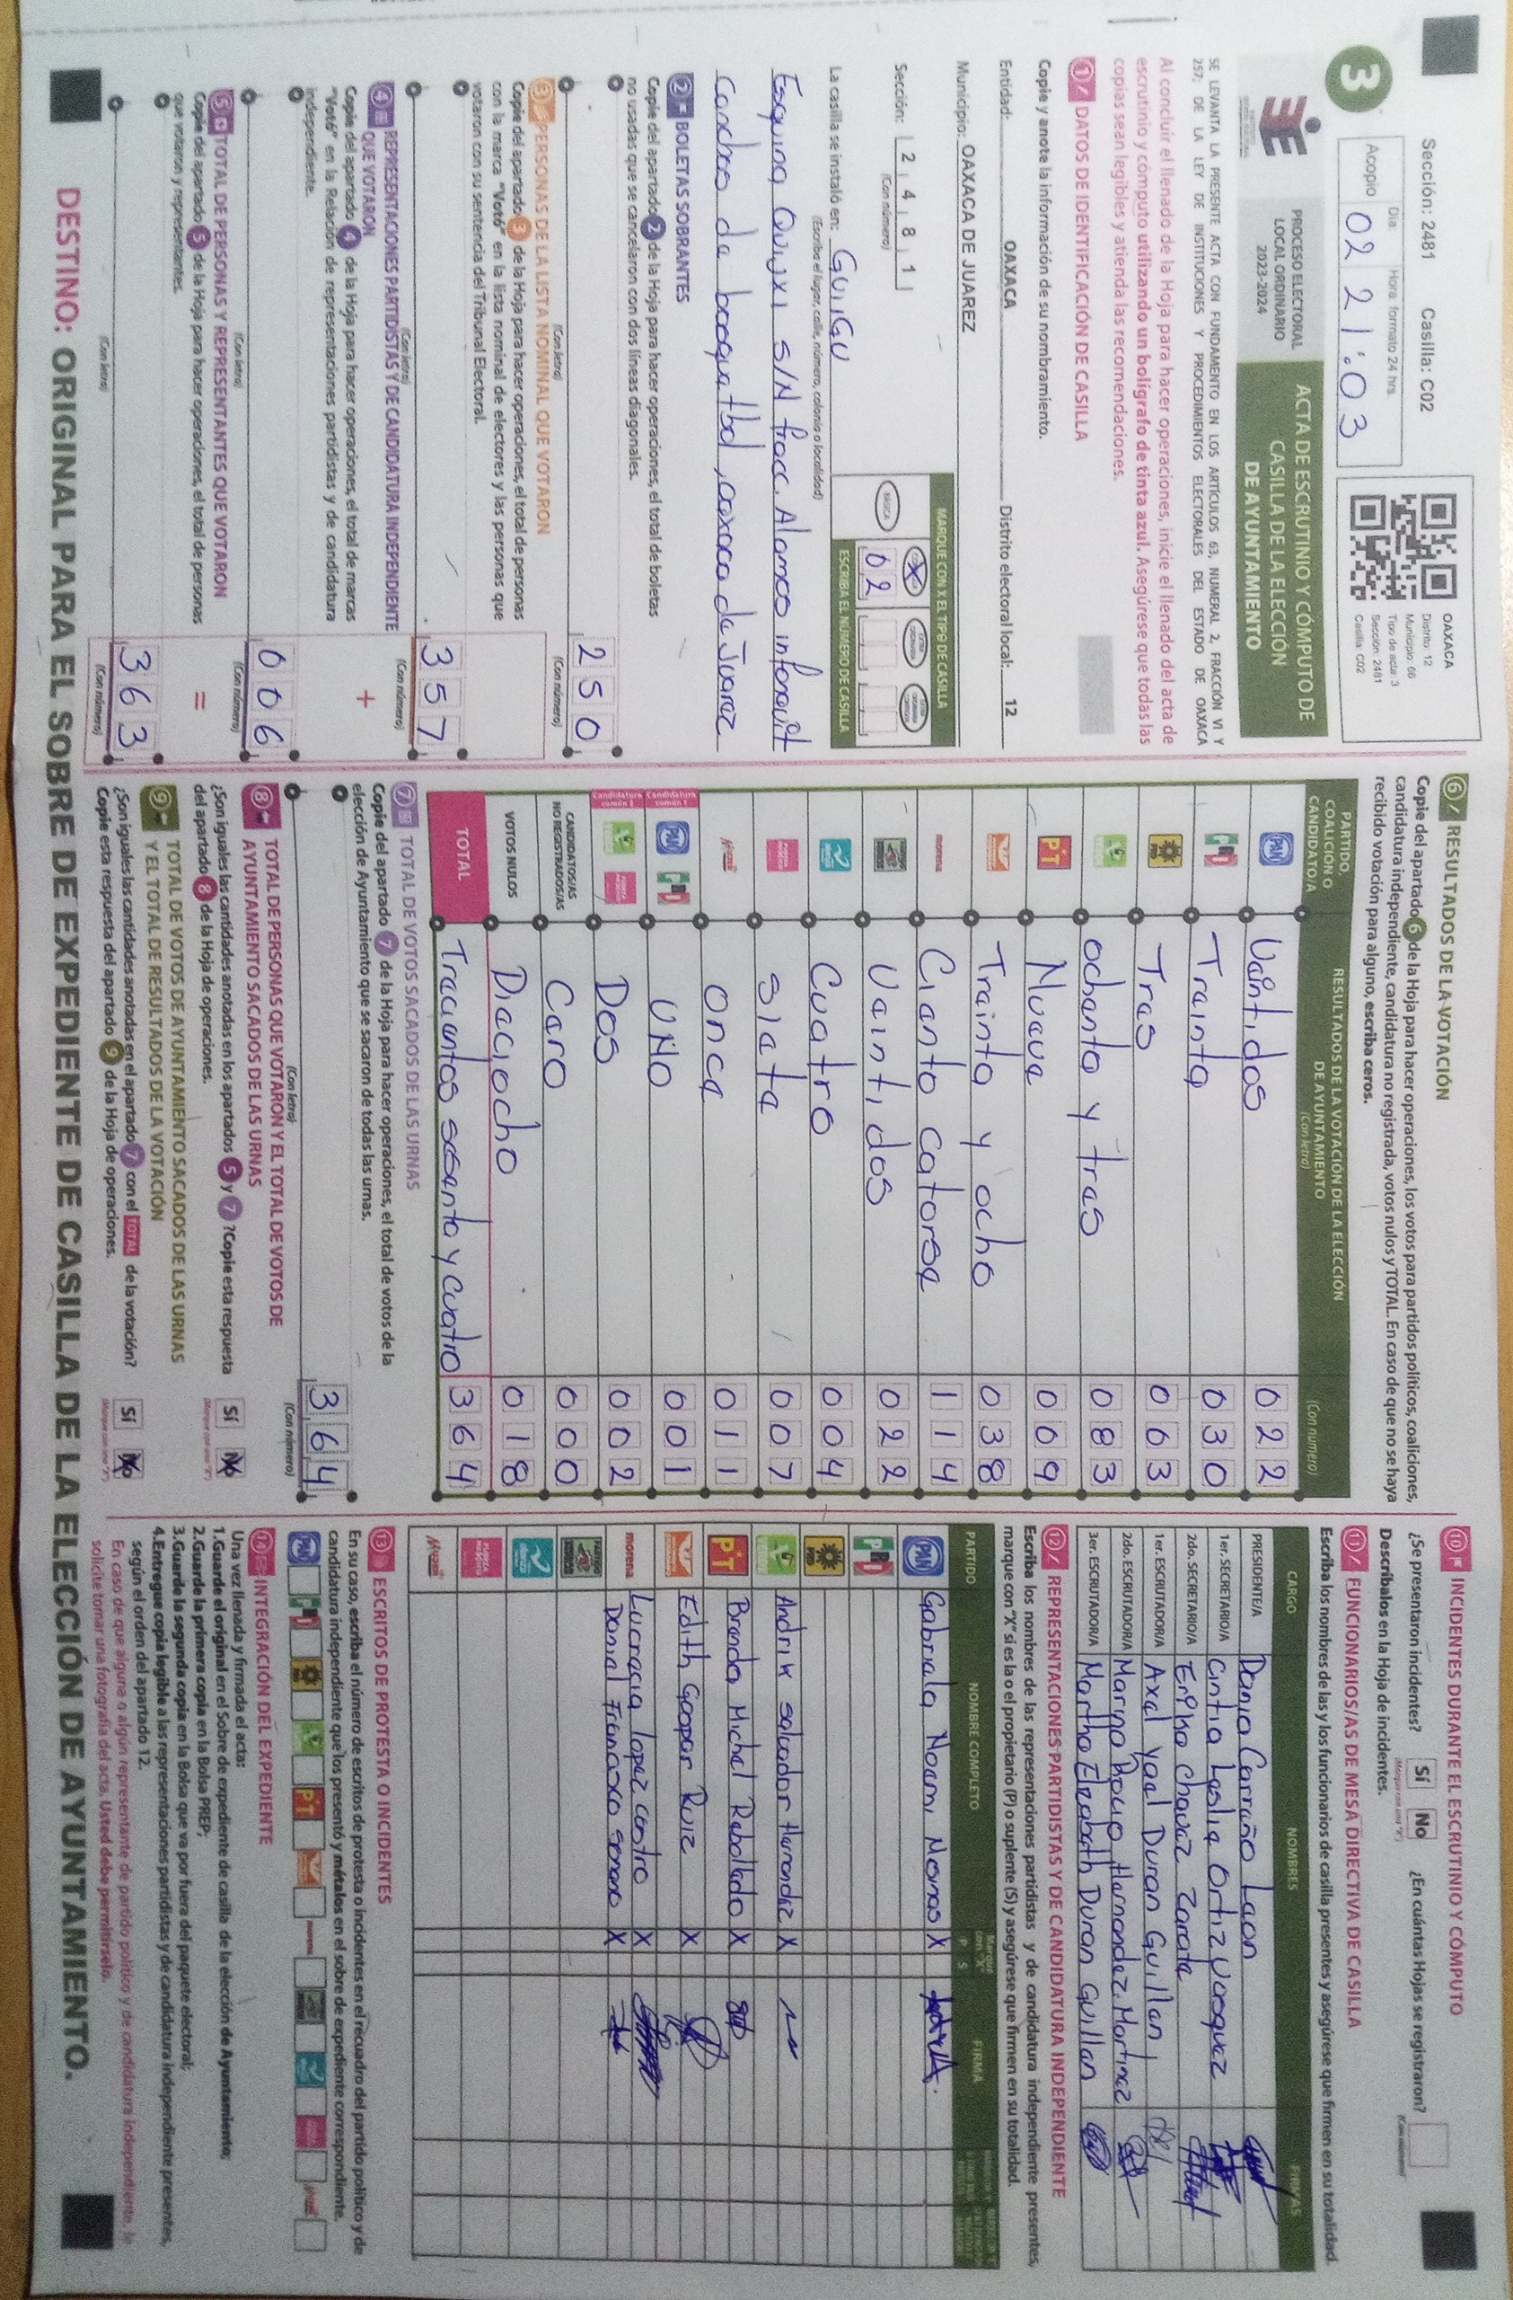 Sección: 2481 Casilla: C02
3
Acopio
Día:
Hora: formato 24 hrs
02 21:03
OAXACA
Distrito: 12
Municipio: 66
Tipo de acta: 3
Sección: 2481
Casilla: C02
PROCESO ELECTORAL
LOCAL ORDINARIO
2023-2024
ACTA DE ESCRUTINIO Y CÓMPUTO DE
CASILLA DE LA ELECCIÓN
DE AYUNTAMIENTO
SE LEVANTA LA PRESENTE ACTA CON FUNDAMENTO EN LOS ARTÍCULOS 63, NUMERAL 2, FRACCIÓN VI Y
257; DE LA LEY DE INSTITUCIONES Y PROCEDIMIENTOS ELECTORALES DEL ESTADO DE OAXACA
Al concluir el llenado de la Hoja para hacer operaciones, inicie el llenado del acta de
escrutinio y cómputo utilizando un bolígrafo de tinta azul. Asegúrese que todas las
copias sean legibles y atienda las recomendaciones.
1 DATOS DE IDENTIFICACIÓN DE CASILLA
Copie y anote la información de su nombramiento.
Entidad: OAXACA Distrito electoral local: 12
Municipio: OAXACA DE JUAREZ
Sección: 2 4 8 1
(Con número)
MARQUE CON X EL TIPO DE CASILLA
BÁSICA
X
ESCRIBA EL NÚMERO DE CASILLA
02
La casilla se instaló en: GUIIGU
(Escriba el lugar, calle, número, colonia o localidad)
Esquina Quijxi S/N fracc. Alamos infonavit
Canchas de basquetbol, oaxaca de Juarez
2 BOLETAS SOBRANTES
Copie del apartado 2 de la Hoja para hacer operaciones, el total de boletas
no usadas que se cancelaron con dos líneas diagonales.
250
(Con letra) (Con número)
3 PERSONAS DE LA LISTA NOMINAL QUE VOTARON
Copie del apartado 3 de la Hoja para hacer operaciones, el total de personas
con la marca "Votó" en la lista nominal de electores y las personas que
votaron con su sentencia del Tribunal Electoral.
357
(Con letra) (Con número)
4 REPRESENTACIONES PARTIDISTAS Y DE CANDIDATURA INDEPENDIENTE
QUE VOTARON
+
Copie del apartado 4 de la Hoja para hacer operaciones, el total de marcas
"Votó" en la Relación de representaciones partidistas y de candidatura
independiente.
006
(Con letra) (Con número)
5 TOTAL DE PERSONAS Y REPRESENTANTES QUE VOTARON
=
Copie del apartado 5 de la Hoja para hacer operaciones, el total de personas
que votaron y representantes.
363
(Con letra) (Con número)
6 RESULTADOS DE LA VOTACIÓN
Copie del apartado 6 de la Hoja para hacer operaciones, los votos para partidos políticos, coaliciones,
candidatura independiente, candidatura no registrada, votos nulos y TOTAL. En caso de que no se haya
recibido votación para alguno, escriba ceros.
PARTIDO,
COALICIÓN O
CANDIDATO/A
RESULTADOS DE LA VOTACIÓN DE LA ELECCIÓN
DE AYUNTAMIENTO
(Con letra) (Con número)
PAN Veintidos 022
PRI Treinta 030
PRD Tres 003
Ochenta y tres 083
PT Nueve 009
Treinta y ocho 038
morena Ciento catorse 114
Veintidos 022
Cuatro 004
Siete 007
Once 011
Candidatura común 1 PAN PRI UNO 001
Candidatura común 2 Dos 002
CANDIDATOS/AS
NO REGISTRADOS/AS Cero 000
VOTOS NULOS Dieciocho 018
TOTAL Trecientos sesenta y cuatro 364
7 TOTAL DE VOTOS SACADOS DE LAS URNAS
Copie del apartado 7 de la Hoja para hacer operaciones, el total de votos de la
elección de Ayuntamiento que se sacaron de todas las urnas.
364
(Con letra) (Con número)
8 TOTAL DE PERSONAS QUE VOTARON Y EL TOTAL DE VOTOS DE
AYUNTAMIENTO SACADOS DE LAS URNAS
¿Son iguales las cantidades anotadas en los apartados 5 y 7 ? Copie esta respuesta
del apartado 8 de la Hoja de operaciones.
Sí No
9 TOTAL DE VOTOS DE AYUNTAMIENTO SACADOS DE LAS URNAS
Y EL TOTAL DE RESULTADOS DE LA VOTACIÓN
¿Son iguales las cantidades anotadas en el apartado 7 con el TOTAL de la votación?
Copie esta respuesta del apartado 9 de la Hoja de operaciones.
Sí No
10 INCIDENTES DURANTE EL ESCRUTINIO Y CÓMPUTO
¿Se presentaron incidentes? Sí No ¿En cuántas Hojas se registraron?
Descríbalos en la Hoja de incidentes.
11 FUNCIONARIOS/AS DE MESA DIRECTIVA DE CASILLA
Escriba los nombres de las y los funcionarios de casilla presentes y asegúrese que firmen en su totalidad.
CARGO NOMBRES FIRMAS
PRESIDENTE/A Dania Carreño Leon
1er. SECRETARIO/A Cintia Leslie Ortiz Vasquez
2do. SECRETARIO/A Erika Chavez Zarate
1er. ESCRUTADOR/A Axel Yael Duran Guillen
2do. ESCRUTADOR/A Marina Rocio Hernandez Martinez
3er. ESCRUTADOR/A Martha Elizabeth Duran Guillen
12 REPRESENTACIONES PARTIDISTAS Y DE CANDIDATURA INDEPENDIENTE
Escriba los nombres de las representaciones partidistas y de candidatura independiente presentes,
marque con "X" si es la o el propietario (P) o suplente (S) y asegúrese que firmen en su totalidad.
PARTIDO NOMBRE COMPLETO P S FIRMA
PAN Gabriela Noemi Mesinas X
PRI
PRD
Andrik Salvador Hernandez X
PT Brandon Michel Rebollado X
Edith Gaspar Ruiz X
morena Lucrecia Lopez Castro X
Daniel Francisco Serrano X
13 ESCRITOS DE PROTESTA O INCIDENTES
En su caso, escriba el número de escritos de protesta o incidentes en el recuadro del partido político y de
candidatura independiente que los presentó y métalos en el sobre de expediente correspondiente.
PAN PRI PT morena
14 INTEGRACIÓN DEL EXPEDIENTE
Una vez llenada y firmada el acta:
1.Guarde el original en el Sobre de expediente de casilla de la elección de Ayuntamiento;
2.Guarde la primera copia en la Bolsa PREP;
3.Guarde la segunda copia en la Bolsa que va por fuera del paquete electoral;
4.Entregue copia legible a las representaciones partidistas y de candidatura independiente presentes,
según el orden del apartado 12.
En caso de que alguna o algún representante de partido político y de candidatura independiente le
solicite tomar una fotografía del acta, Usted debe permitírselo.
DESTINO: ORIGINAL PARA EL SOBRE DE EXPEDIENTE DE CASILLA DE LA ELECCIÓN DE AYUNTAMIENTO.